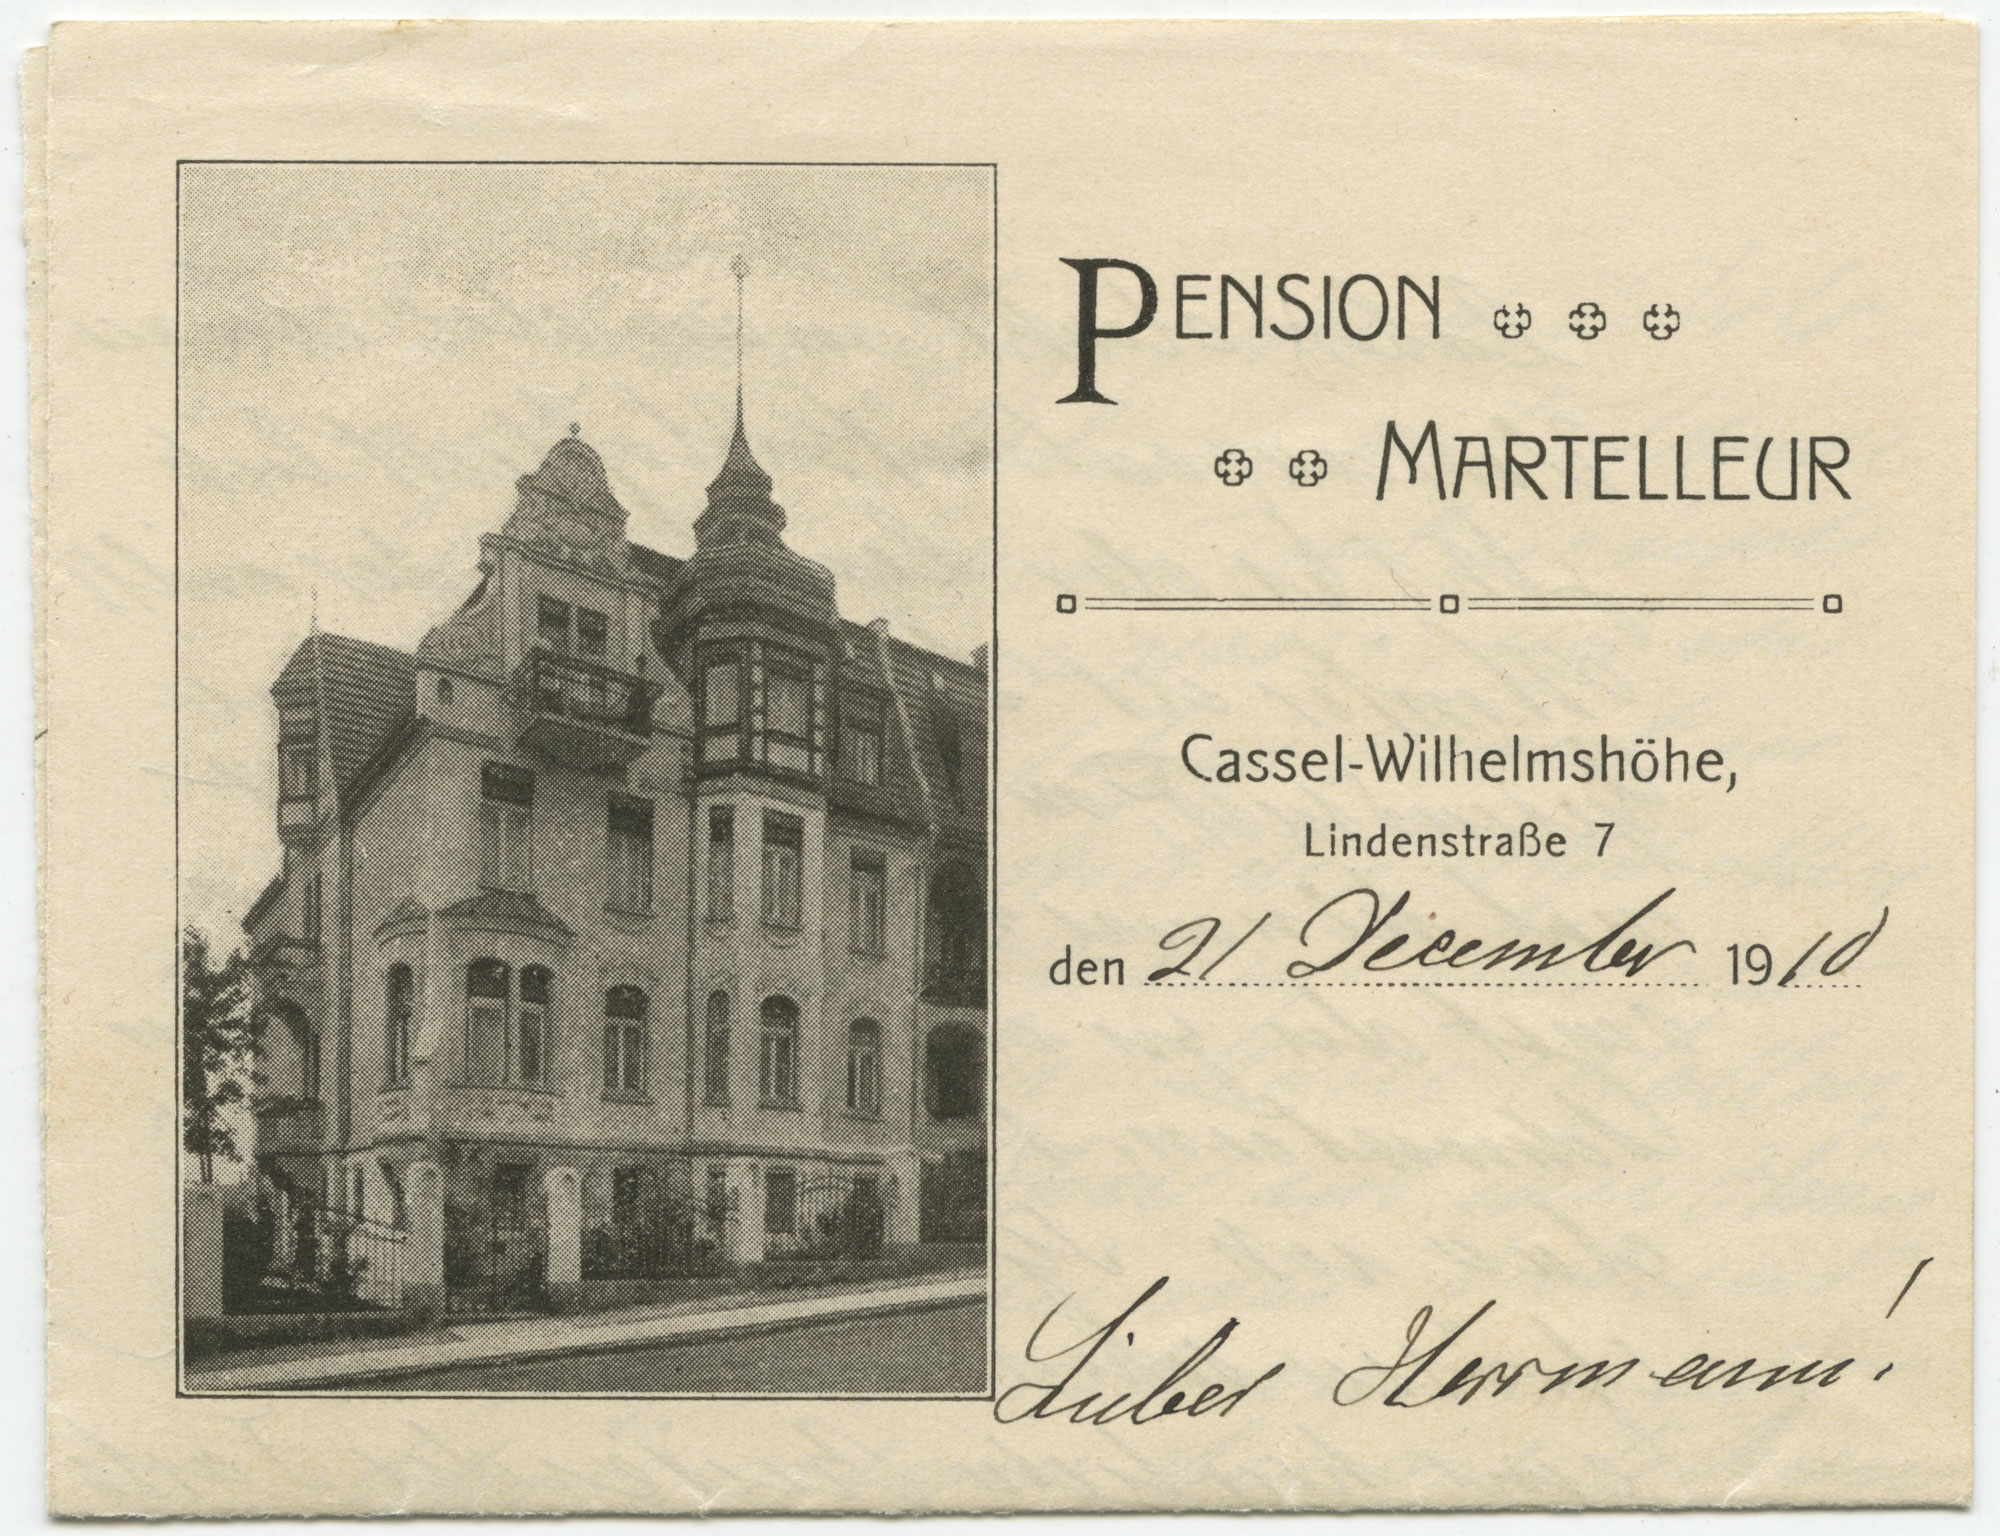 PENSION
MARTELLEUR
Cassel-Wilhelmshöhe,
Lindenstraße 7
den 21 December 1910
Lieber Herrmann!